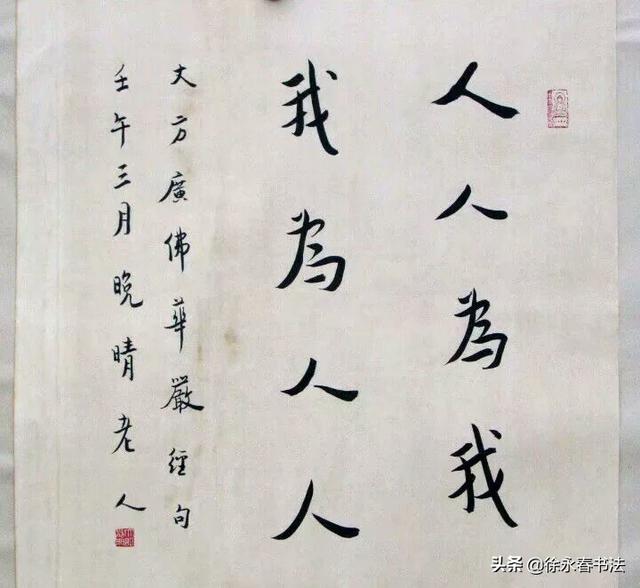 人人為我
我為人人
大方廣佛華嚴經句
壬午三月晚晴老人
头条 @徐永春书法